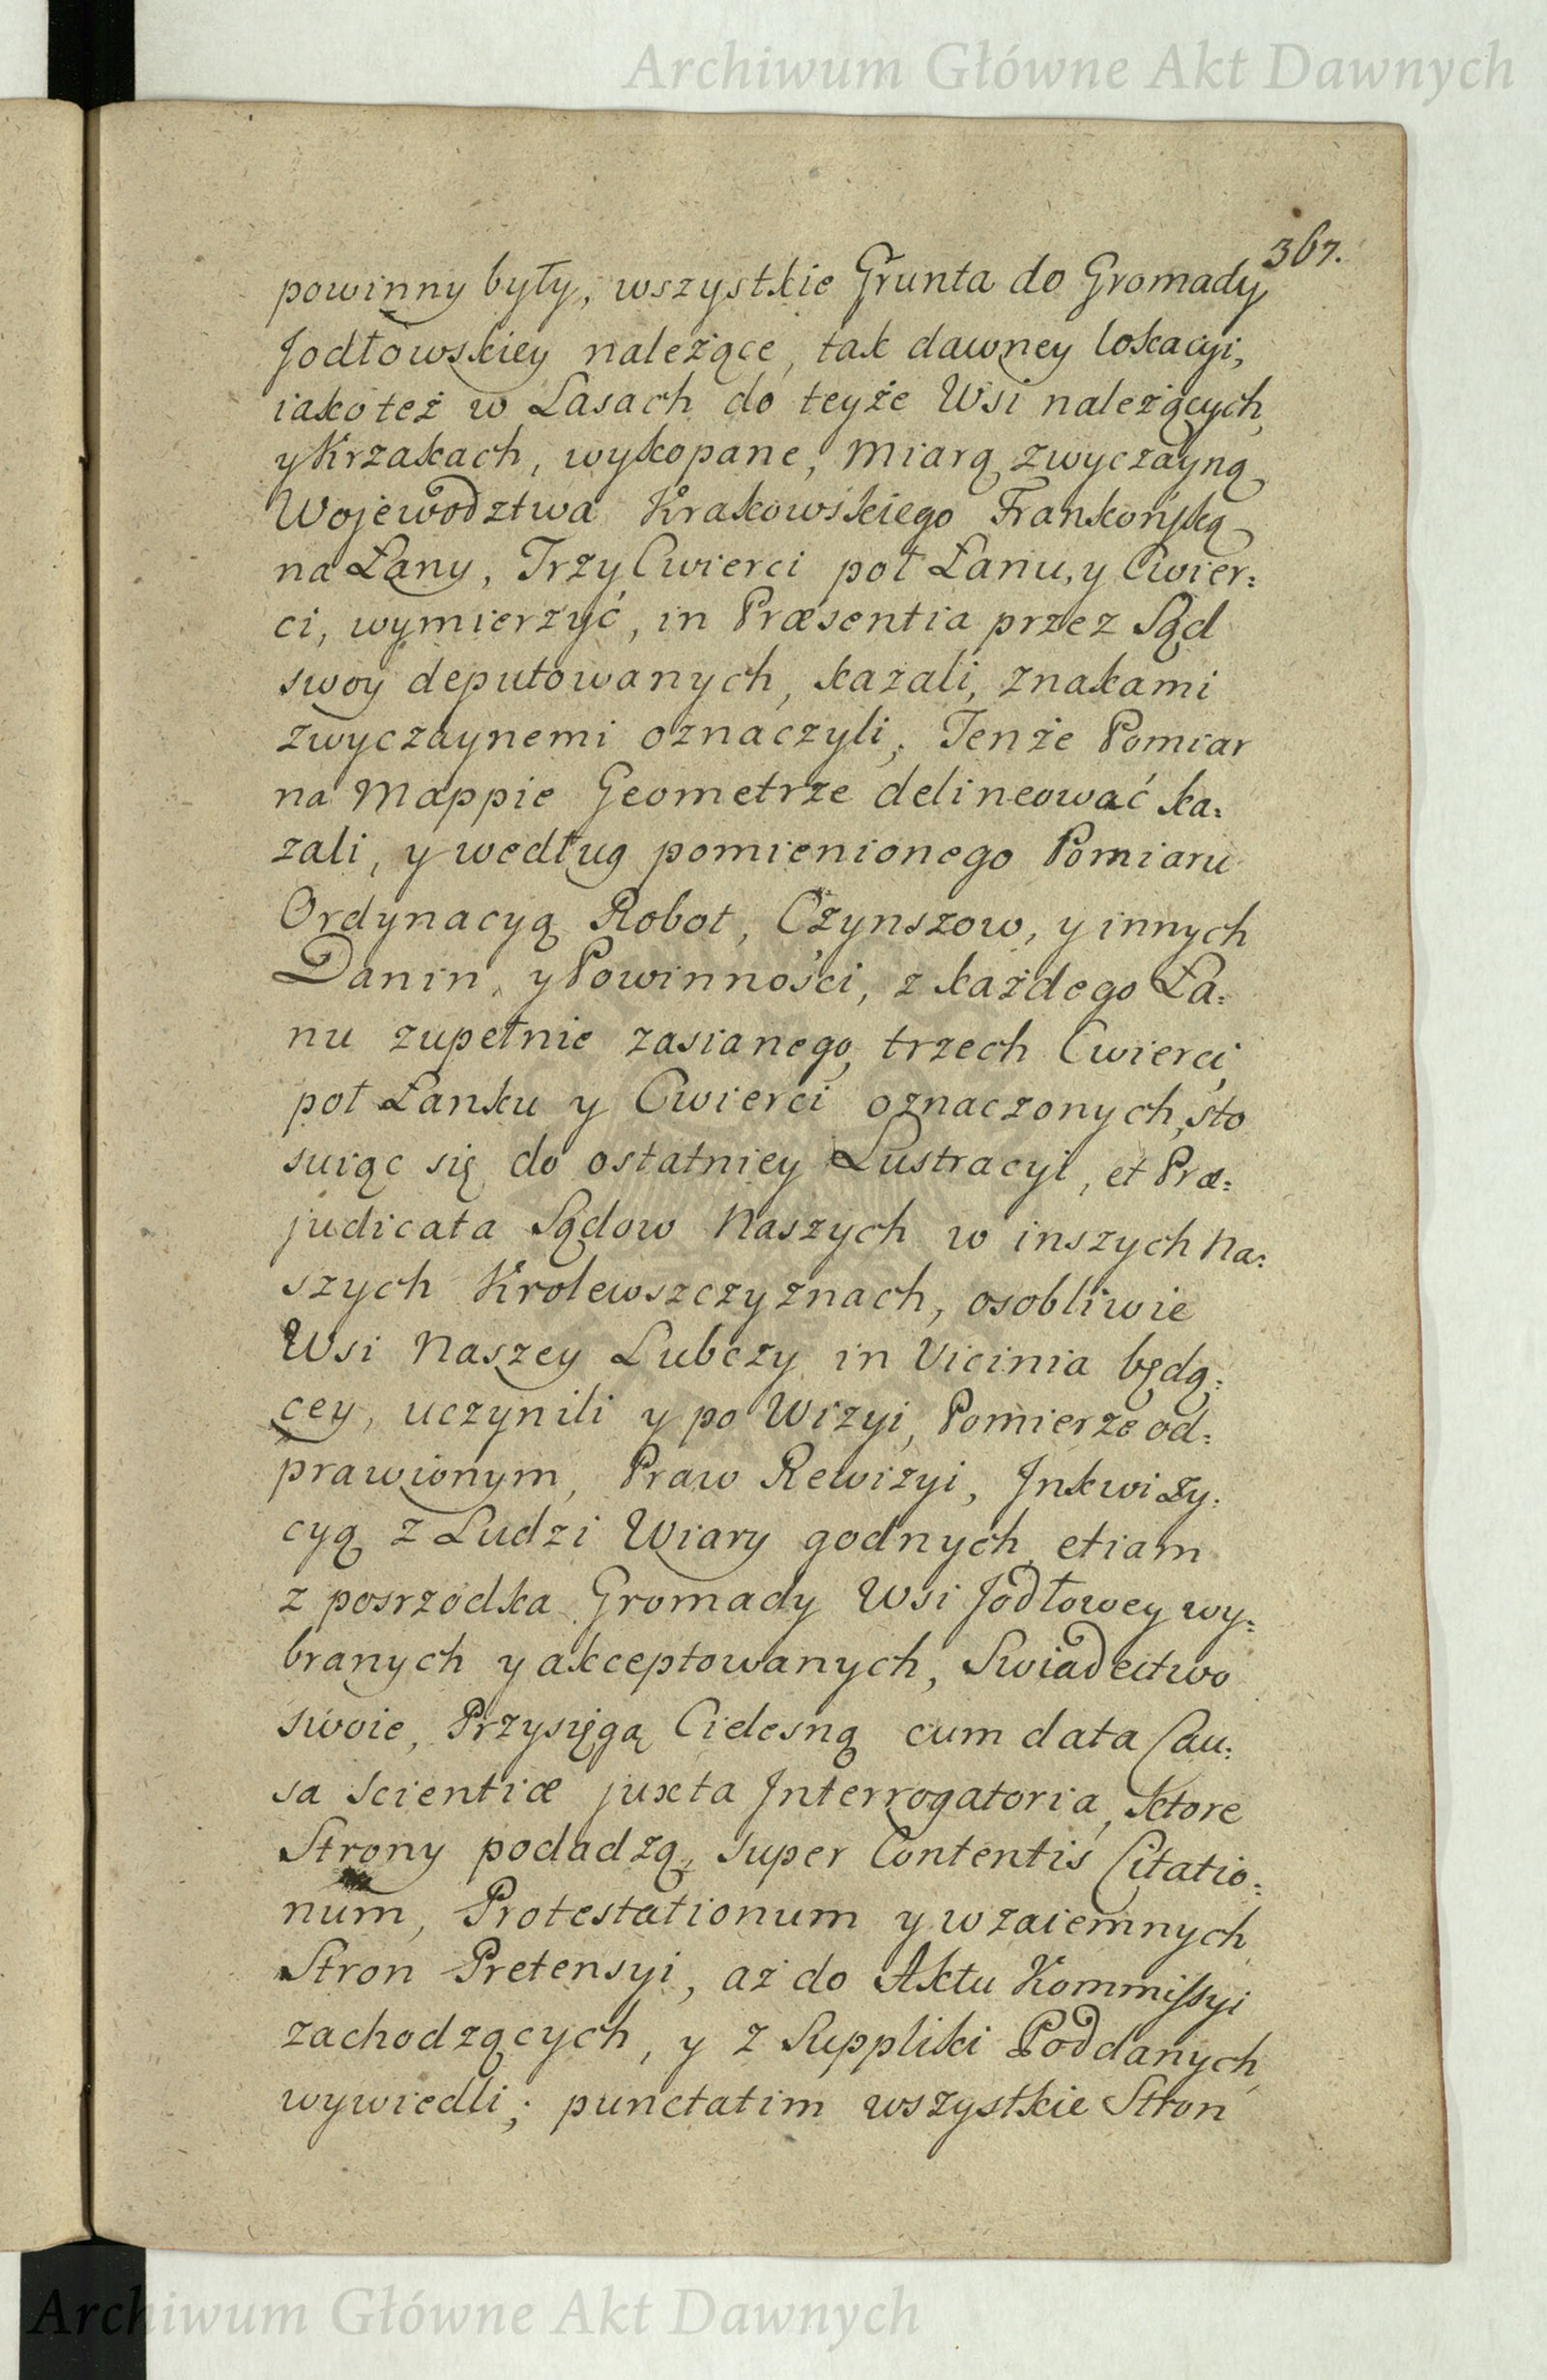 Archiwum Główne Akt Dawnych
367.
powinny były, wszystkie Grunta do Gromady
Jodłowskiey należące, tak dawney lokacyi,
iako też w Lasach do teyże Wsi należących,
y Krzakach, wykopane, miarą zwyczayną
Wojewodztwa Krakowskiego Frankońską
na Łany, Trzy Cwierci poł Łanu, y Cwier:
ci, wymierzyć, in Præsentia przez Sąd
swoy deputowanych, kazali, znakami
zwyczaynemi oznaczyli, Tenże Pomiar
na Mappie Geometrze delineować ka:
zali, y według pomienionego Pomiaru
Ordynacyą Robot, Czynszow, y innych
Danin, y Powinności, z każdego Ła:
nu zupełnie zasianego, trzech Cwierci,
poł Łanku y Cwierci oznaczonych, sto
suiąc się do ostatniey Lustracyi, et Præ:
judicata Sądow Naszych w inszych Na:
szych Krolewszczyznach, osobliwie
Wsi Naszey Lubczy in Vicinia będą:
cey, uczynili y po Wizyi, Pomierze od:
prawionym, Praw Rewizyi, Inkwizy:
cyą z Ludzi Wiary godnych, etiam
z posrzodka Gromady Wsi Jodłowey wy:
branych y akceptowanych, Swiadectwo
swoie, Przysięgą Cielesną cum data Cau:
sa Scientiæ juxta Interrogatoria, ktore
Strony podadzą, super Contentis Citatio:
num, Protestationum y wzaiemnych
Stron Pretensyi, aż do Aktu Kommissyi
zachodzących, y z Suppliki Poddanych
wywiedli; punctatim wszystkie Stron
Archiwum Główne Akt Dawnych